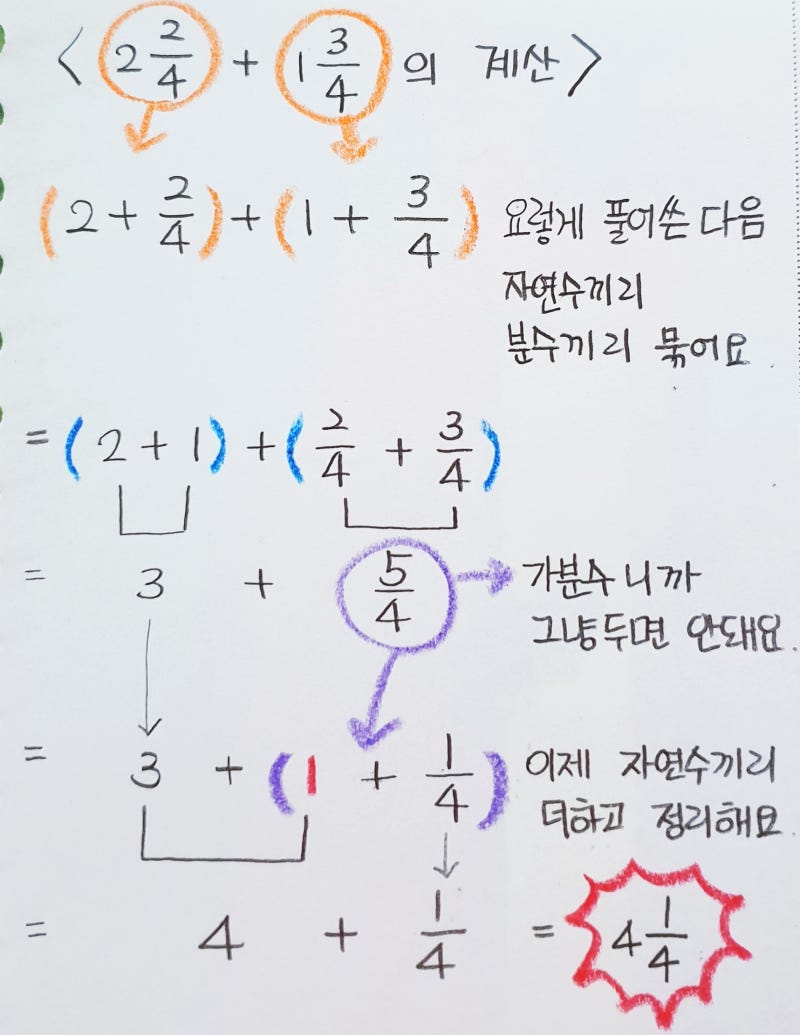 < 2 2/4 + 1 3/4 의 계산 >
(2 + 2/4) + (1 + 3/4) 요렇게 풀어쓴 다음
자연수끼리
분수끼리 묶어요
= (2 + 1) + (2/4 + 3/4)
= 3 + 5/4 가분수니까
그냥두면 안돼요.
= 3 + (1 + 1/4) 이제 자연수끼리
더하고 정리해요.
= 4 + 1/4 = 4 1/4